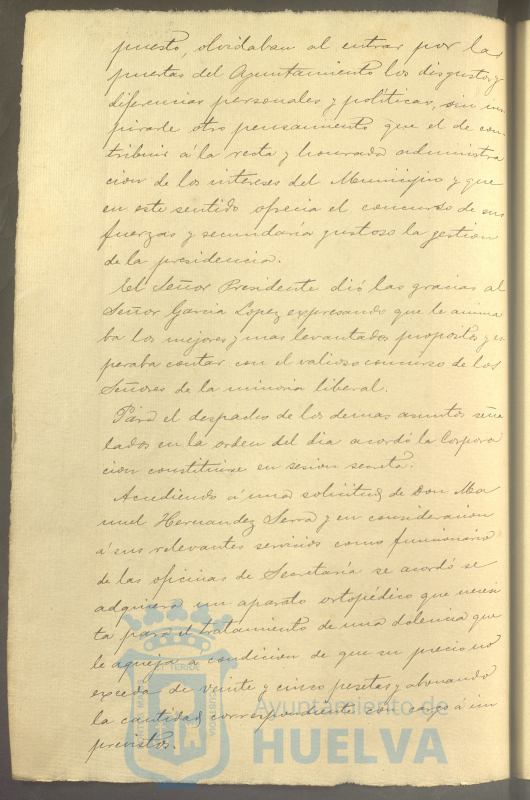 puesto, olvidaban al entrar por las
puertas del Ayuntamiento los disgustos y
diferencias personales y políticas, sin ins
pirarle otro pensamiento que el de con
tribuir á la recta y honrada administra
cion de los intereses del Municipio y que
en este sentido ofrecia el concurso de sus
fuerzas y secundaría gustoso la gestion
de la presidencia.
El Señor Presidente dió las gracias al
Señor Garcia Lopez expresando que le anima
ba los mejores y mas levantados propositos y es
peraba contar con el valioso concurso de los
Señores de la minoria liberal.
Para el despacho de los demas asuntos seña
lados en la orden del dia acordó la Corpora
cion constituirse en sesion secreta.
Accediendo á una solicitud de Don Ma
nuel Hernandez Serra y en consideracion
á sus relevantes servicios como funcionario
de las oficinas de Secretaría se acordó se
adquiera un aparato ortopédico que necesi
ta para el tratamiento de una dolencia que
le aqueja a condicion de que su precio no
exceda de veinte y cinco pesetas y abonando
la cantidad correspondiente con cargo á im
previstos.
Ayuntamiento de
HUELVA